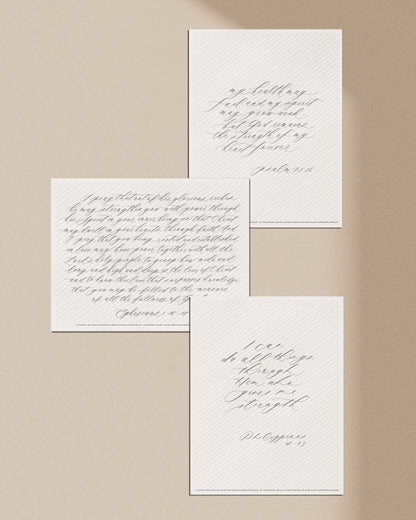 my health may
fail and my spirit
may grow weak
but God remains
the strength of my
heart forever
psalm 73:26
I pray that out of his glorious riches
he may strengthen you with power through
his Spirit in your inner being so that Christ
may dwell in your hearts through faith. And
I pray that you being rooted and established
in love may have power, together with all the
Lord's holy people to grasp how wide and
long and high and deep is the love of Christ
and to know this love that surpasses knowledge,
that you may be filled to the measure
of all the fullness of
Ephesians 3:
I can
do all things
through
Him who
gives me
strength
Philippians
4:13